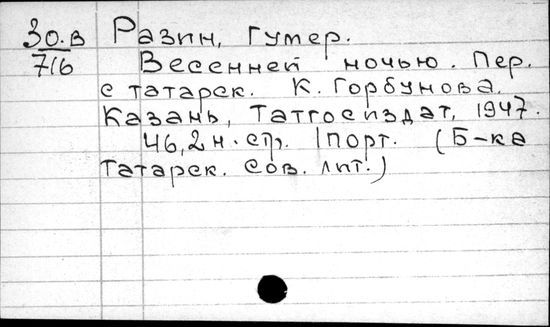 30.в Разин, Гумер.
716 Весенней ночью. Пер.
с татарск. К. Горбунова.
Казань, Татгосиздат, 1947.
46,2 н. стр. 1 порт. (Б-ка
татарск. сов. лит.)